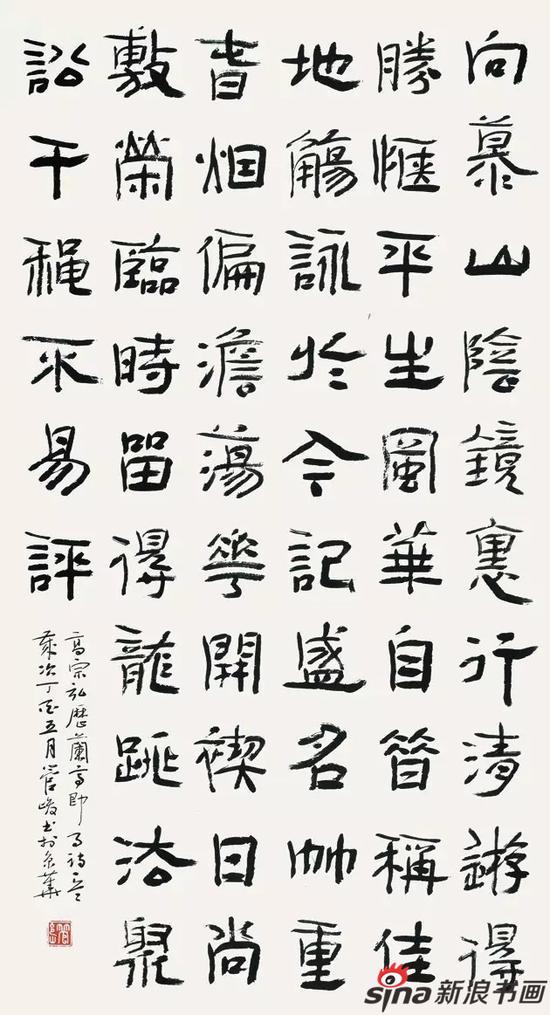 向慕山陰鏡裏行清遊得
勝愜平生風華自昔稱佳
地觴詠於今記盛名竹重
旾烟偏澹蕩花開禊日尚
敷榮臨時留得龍跳法聚
訟千秋不易評
高宗弘歷蘭亭即事詩一首
歲次丁酉五月管峻書於京華
sina新浪书画